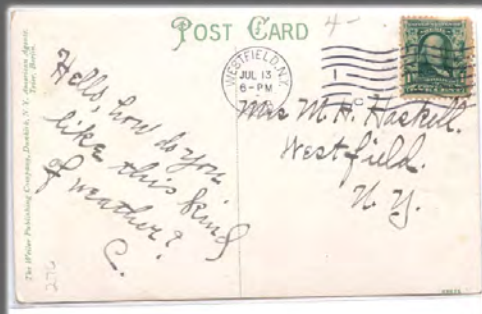 POST CARD
4-
WESTFIELD, N.Y.
JUL 13
6-PM
Hello, how do you
like this kind
of weather?
C.
Mrs M. H. Haskell.
Westfield.
N. Y.
276
The Publishing Company, Dunkirk, N. Y. American Agents.
Berlin.